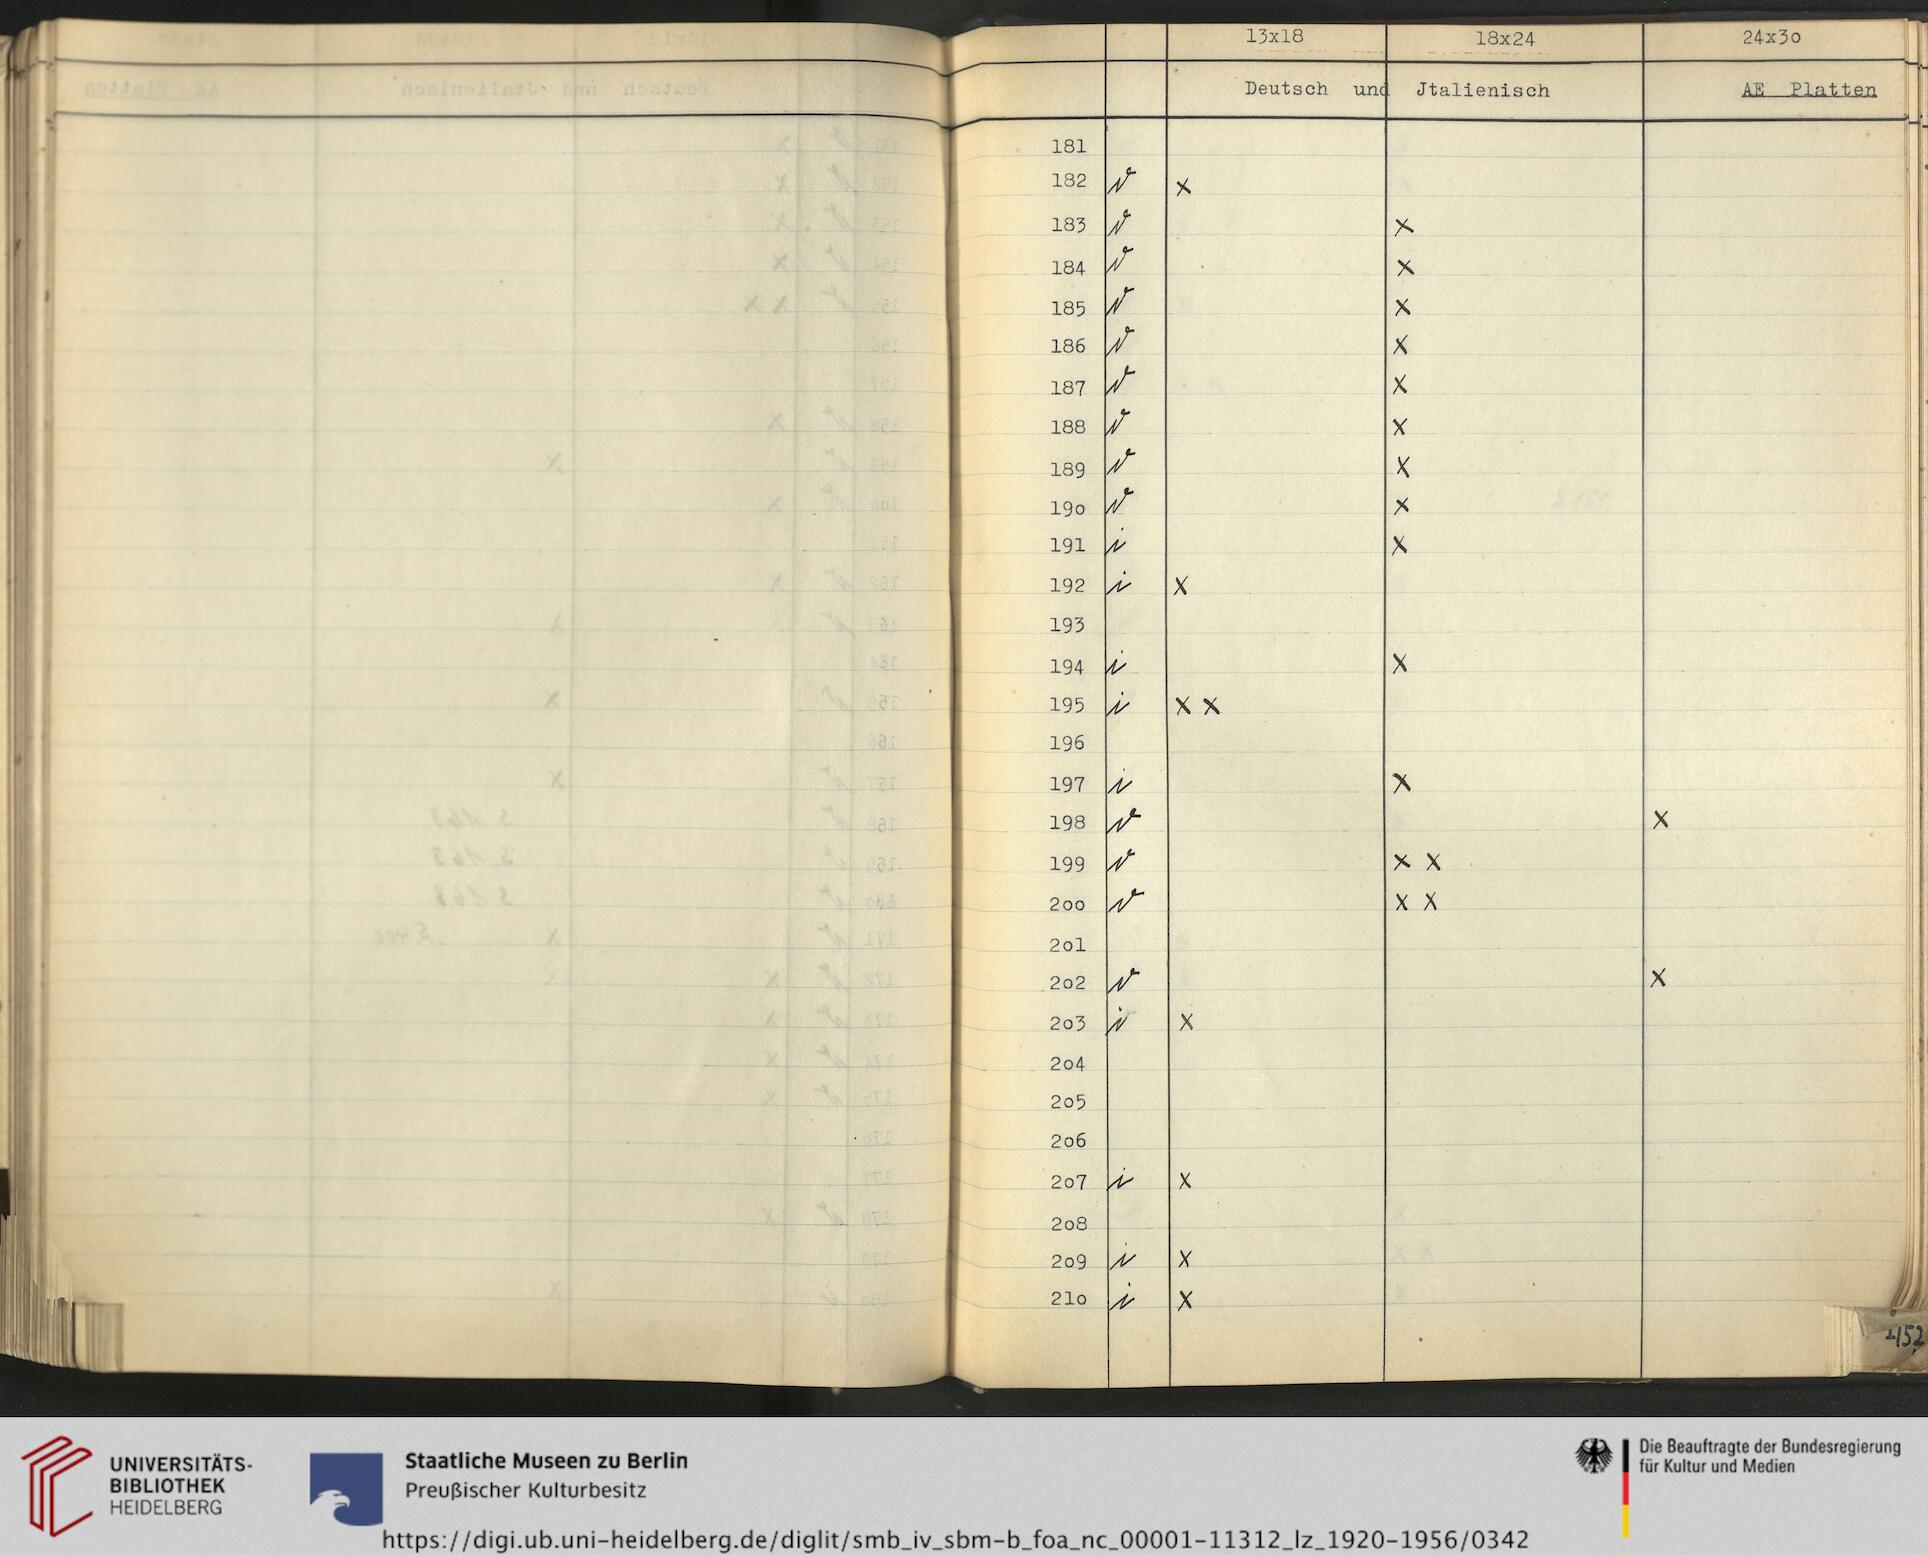 13x18 18x24 24x3o
Deutsch und Jtalienisch AE Platten
181
182 v x
183 v x
184 v x
185 v x
186 v x
187 v x
188 v x
189 v x
19o v x
191 i x
192 i x
193
194 i x
195 i x x
196
197 i x
198 v x
199 v x x
2oo v x x
2o1
2o2 v x
2o3 i x
2o4
2o5
2o6
2o7 i x
2o8
2o9 i x
21o i x
UNIVERSITÄTS-
BIBLIOTHEK
HEIDELBERG
Staatliche Museen zu Berlin
Preußischer Kulturbesitz
Die Beauftragte der Bundesregierung
für Kultur und Medien
https://digi.ub.uni-heidelberg.de/diglit/smb_iv_sbm-b_foa_nc_00001-11312_lz_1920-1956/0342